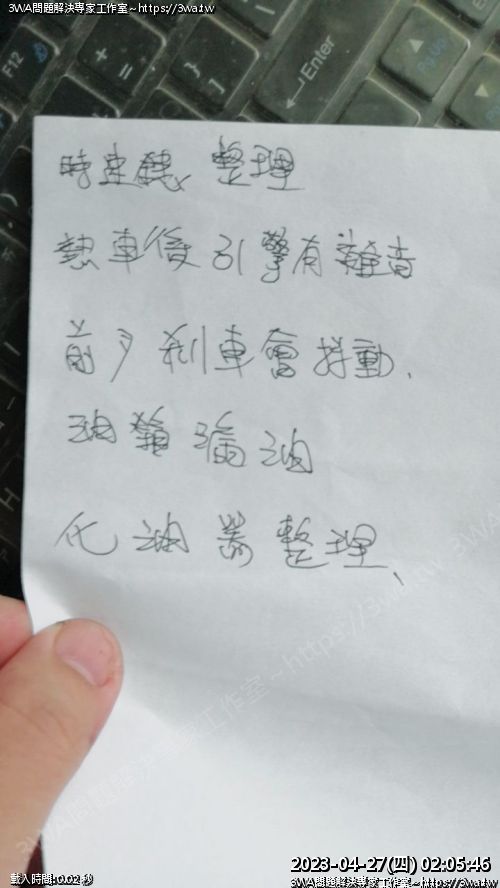 3WA問題解決專家工作室~https://3wa.tw
F12
+
=
}
]
Enter
PgUp
時速錶 整理
熱車後引擎有雜音
前 剎車會抖動、
油箱漏油
化油器整理、
3WA問題解決專家工作室~https://3wa.tw
載入時間:0.02 秒
2023-04-27(四) 02:05:46
3WA問題解決專家工作室~https://3wa.tw